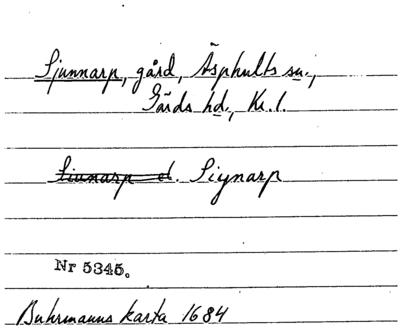 Sjunnarp, gård, Äsphults sn.,
Gärds hd., Kr. l.
Siunarp el. Siynarp
Nr 5345.
Buhrmanns karta 1684